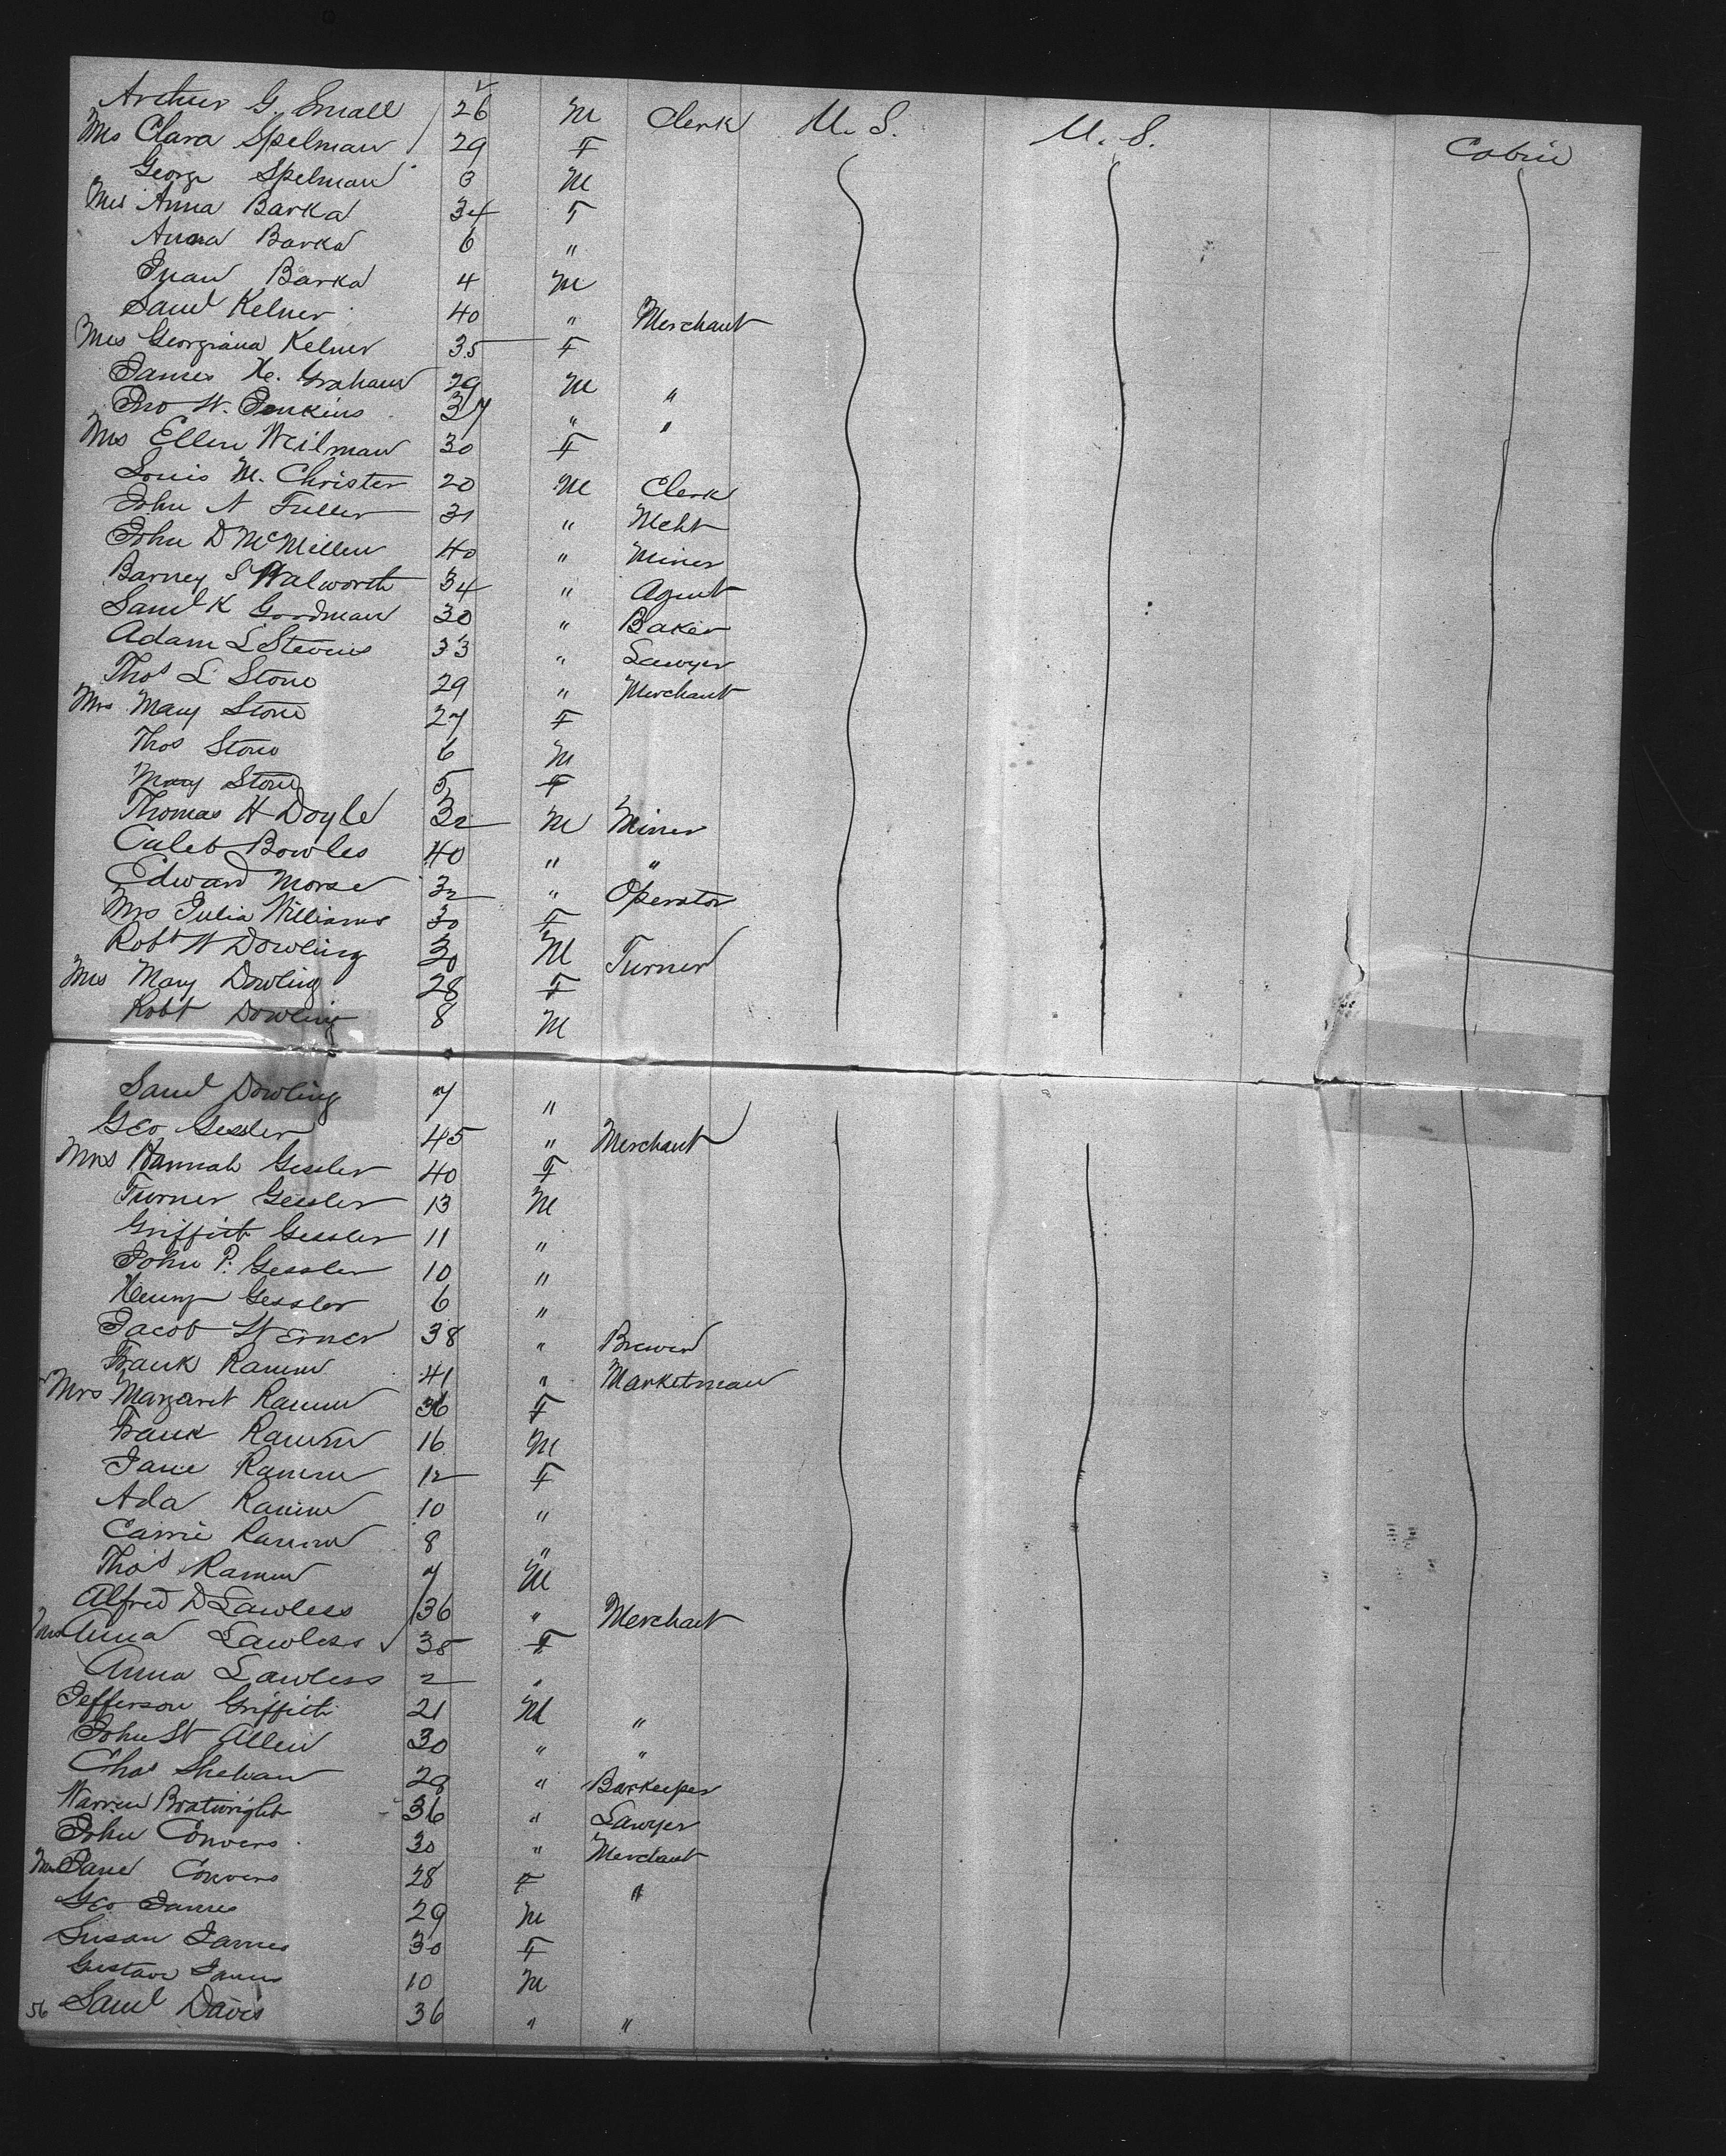 Arthur G. Small 26 M Clerk U. S. U. S. Cabin
Mrs Clara Spelman 29 F
George Spelman 3 M
Mrs Anna Barka 34 F
Anna Barka 6 "
Juan Barka 4 M
Saml Kelner 40 " Merchant
Mrs Georgiana Kelner 35 F
James H. Graham 29 M "
Jno W. Jenkins 37 " "
Mrs Ellen Weilman 30 F
Louis M. Christer 20 M Clerk
John N Fuller 31 " Mcht
John D McMillen 40 " Miner
Barney S Walworth 34 " Agent
Saml K Goodman 30 " Baker
Adam L Stevens 33 " Lawyer
Thos L Stone 29 " Merchant
Mrs Mary Stone 27 F
Thos Stone 6 M
Mary Stone 5 F
Thomas H Doyle 32 M Miner
Caleb Bowles 40 " "
Edward Morse 32 " Operator
Mrs Julia Williams 30 F
Robt W Dowling 30 M Turner
Mrs Mary Dowling 28 F
Robt Dowling 8 M
Saml Dowling 7 "
Geo Gessler 45 " Merchant
Mrs Hannah Gessler 40 F
Turner Gessler 13 M
Griffith Gessler 11 "
John P. Gessler 10 "
Henry Gessler 6 "
Jacob Werner 38 " Brewer
Frank Ramm 41 " Marketman
Mrs Margaret Ramm 36 F
Frank Ramm 16 M
Jane Ramm 12 F
Ada Ramm 10 "
Carrie Ramm 8 "
Thos Ramm 7 M
Alfred D Lawless 36 " Merchant
Mrs Anna Lawless 38 F
Anna Lawless 2 "
Jefferson Griffith 21 M "
John W Allen 30 " "
Chas Shehan 28 " Barkeeper
Warren Boatwright 36 " Lawyer
John Convers 30 " Merchant
Mrs Jane Convers 28 F "
Geo James 29 M
Susan James 30 F
Gustave James 10 M
56 Saml Davis 36 " "